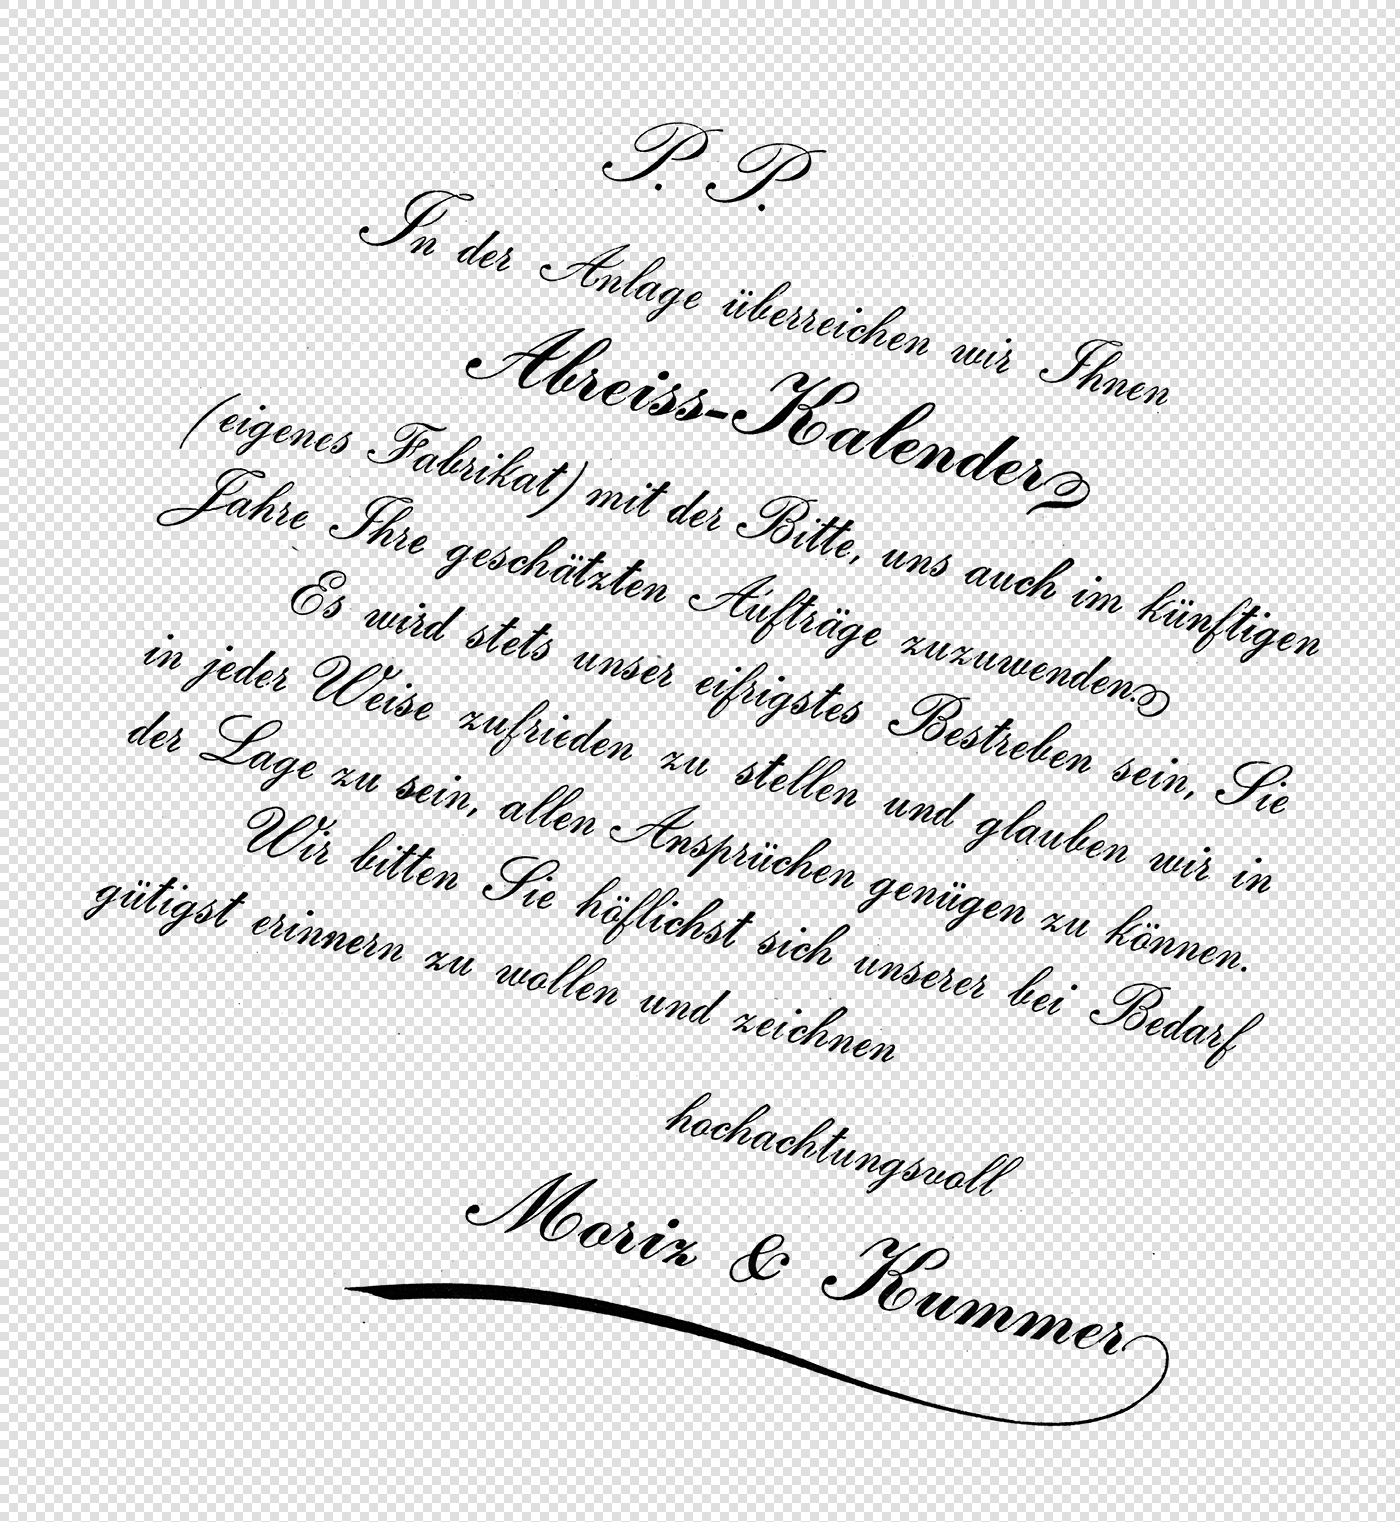 P. P.
In der Anlage überreichen wir Ihnen
Abreiss-Kalender
(eigenes Fabrikat) mit der Bitte, uns auch im künftigen
Jahre Ihre geschätzten Aufträge zuzuwenden.
Es wird stets unser eifrigstes Bestreben sein, Sie
in jeder Weise zufrieden zu stellen und glauben wir in
der Lage zu sein, allen Ansprüchen genügen zu können.
Wir bitten Sie höflichst sich unserer bei Bedarf
gütigst erinnern zu wollen und zeichnen
hochachtungsvoll
Moriz & Kummer